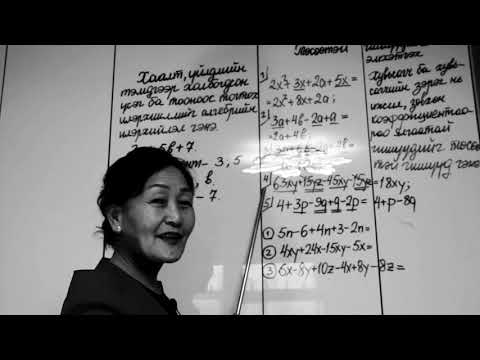 Хаалт, үйлдлийн
тэмдгээр холбогдсон
үсэг ба тооноос тогтох
илэрхийллийг алгебрийн
илэрхийлэл гэнэ
5в+7.
3, 5
в.
- 7.
Төсөөтэй
1)
2x²+3x+2a+5x=
=2x²+8x+2a;
2)
3a+4в-2a+a=
=2a+4в;
4) 63xy+15yz-45xy-15yz=18xy;
5) 4+3p-9q+q-2p=4+p-8q
① 5n-6+4n+3-2n=
② 4xy+24x-15xy-5x=
③ 6x-8y+10z-4x+8y-8z=
Хувьсагч ба хувь-
сагчийн зэрэг нь
ижил, зөвхөн
коэффициентаа-
раа ялгаатай
гишүүдийг төсөө-
тэй гишүүд гэнэ